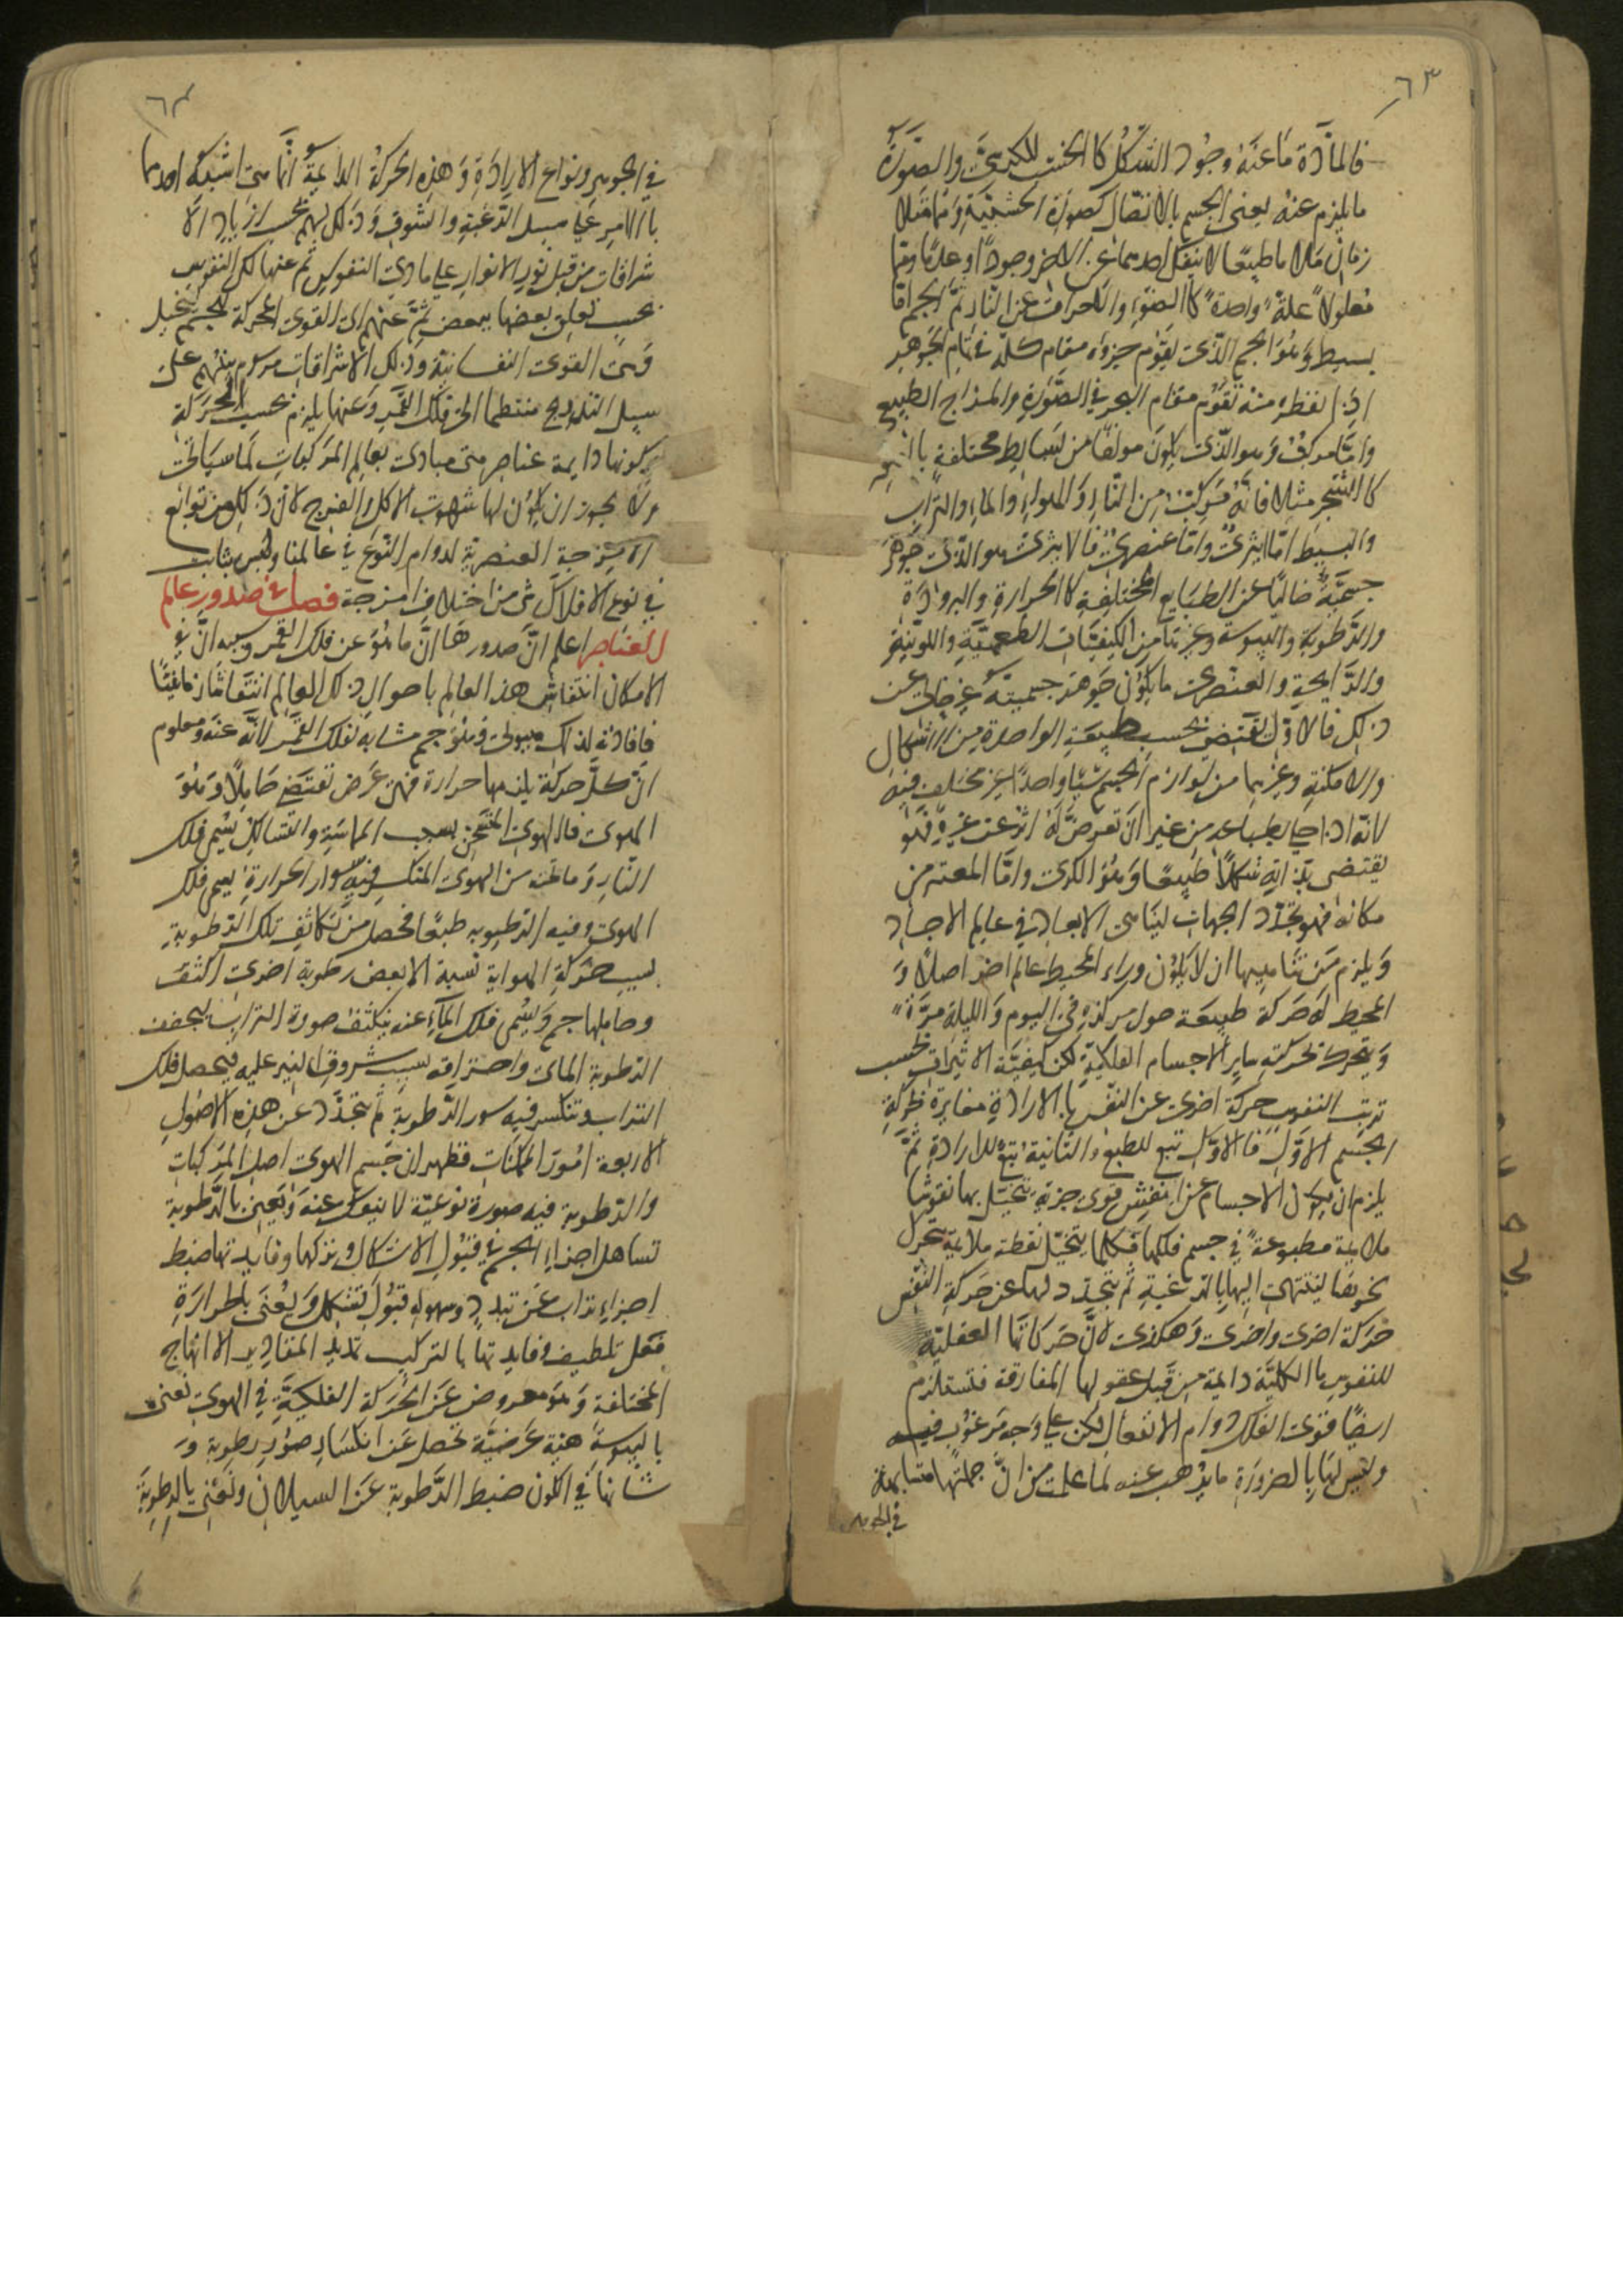 ٦٣
فالمادة ما عنه وجود الشكل كالخشب للكرسي والصورة
ما يلزم عنه يعني الجسم بالاتصال كصورة الخشبية وتمامًا
زمان ملا ما طبيعًا لا ينفك احدهما عن الاخر وجودًا وعدمًا
معلولا علة واحدة كالضوء والحرارة عن النار ثم الجرم اما
بسيط وهو الجرم الذي يقوم جزؤه مقام كله في تمام الجوهر
اذ القطرة منه تقوم مقام البحر في الصورة والمزاج الطبيع
واما مركب وهو الذي يكون مولفا من بسايط مختلفة
كالشجر مثلا فانه مركب من النار والهواء والماء والتراب
والبسيط اما اثيري واما عنصري فالاثيري هو الذي جوهر
جسمية خاليًا عن الطبايع المختلفة كالحرارة والبرودة
والرطوبة واليبوسة وغيرها من الكيفيات الطعمية واللونية
والرايحة والعنصري ما يكون جوهر جسميته غير خالي عن
ذلك فالاول يقتضي بحسب طبيعته الواحدة من الاشكال
والامكنة وغيرها من لوازم الجسم شيئا واحدا غير مختلف فيه
لانه اذا خلي بطباعه من غير ان تعرض له اثر عن غيره فهو
يقتضي بذاته شكلا طبيعا وهو الكري واما المعتبر من
مكانه فهو تحدد الجهات لتناهي الابعاد في عالم الاجساد
ويلزم من تناهيها ان لا يكون وراء المحيط عالم اخر اصلا و
المحيط له حركة طبيعة حول مركزه في اليوم والليلة مرة
ويتحرك بحركته ساير الاجسام الفلكية لكن كيفية الاثيرات بحسب
ترتب النفوس حركة اخرى عن النفس بالارادة مغايرة لحركة
الجسم الاول فالاول تبع للطبع والثانية تبع للارادة ثم
يلزم ان يكون الاجسام عن انفس قوى جزية يتخيل بها نقوشا
ملايمة مطبوعة في جسم فلكها فكلما يتخيل نقطة ملايمة تحرك
نحوها لينتهي اليها بالرغبة ثم يتجدد لها عن حركة النفس
حركة اخرى واخرى وهكذى لان حركاتها العقلية
للنفوس بالكلية دايمة من قبل عقولها المفارقة فتستلزم
ايضا قوى الفلك دوام الانفعال لكن على وجه مرغوب فيه
وليس لها بالضرورة ما يذهب عنه لما علمت من ان جملتها متشابهة
في الجوهر
٦٤
في الجوهر ونوابع الارادة وهذه الحركة الدايمة انما هي اشبه احدها
بالامر على سبيل الرغبة والشوق وذلك لهم بحسب ازدياد الا
شراقات من قبل نور الانوار على مادي النفوس ثم عنها لكل النفوس
بحسب تعلق بعضها ببعض ثم عنهم الى القوى المحركة للجسم بتخيل
وهي القوى النفسانية وذلك الاشراقات من كل منهم على
سبيل التدريج منتظما الى فلك القمر وعنها يلزم بحسب الحركة
كونها دايمة عناصر هي مبادي بعالم المركبات لما سياتي
ولا يجوز ان يكون لها شهوت الاكل والفرج لان ذلك من توابع
الامزجة العنصرية لدوام النوع في عالمنا وليس بثابت
في نوع الافلاك شي من اختلاف امزجة فصل في صدور عالم
العناصر اعلم ان صدورها انما هو عن فلك القمر وسببه ان في
الامكان انتقاش هذا العالم باحوال ذلك العالم انتقاشا زمانيا
فافادنه لذلك هيولي وهو جرم مشابه لفلك القمر لانه عنه ومعلوم
ان كل حركة يلزمها حرارة فهي عرض تقتضي حاملا وهو
الهوى فالهوى المتسخن بسبب المماسة والتشاكل يسمى فلك
النار وما تحته من الهوى المنكسر فيه سوار الحرارة يسمى فلك
الهوى وفيه الرطوبة طبعا فحصل من تكاثف تلك الرطوبة
بسبب حركة الهواية نسبة الا بعض رطوبة اخرى اكثف
وحاملها جرم ويسمى فلك الماء عنه بتكثف صورة التراب لتجفف
الرطوبة المائي واحتراقه بسبب شروق النير عليه فيحصل فلك
التراب وتنكسر فيه سور الرطوبة ثم يتجدد عن هذه الاصول
الاربعة امور الممكنات فظهر ان جسم الهوى اصل المركبات
والرطوبة فيه صورة نوعية لا ينفك عنه ويعني بالرطوبة
تساهل اجزاء الجرم في قبول الاشكال وتركها وفايدتها ضبط
اجزاء تراب عن تبدد وسهولة قبول تشكل ويعني بالحرارة
فعل تلطيف وفايدتها بالتركيب تمديد المقادير الا انهاج
المختلفة وهو معروض عن الحركة الفلكية في الهوى نعني
باليبوسة هيئة عرضية تحصل عن انكسار صور رطوبة و
شانها في الكون ضبط الرطوبة عن السيلان ونعني بالرطوبة